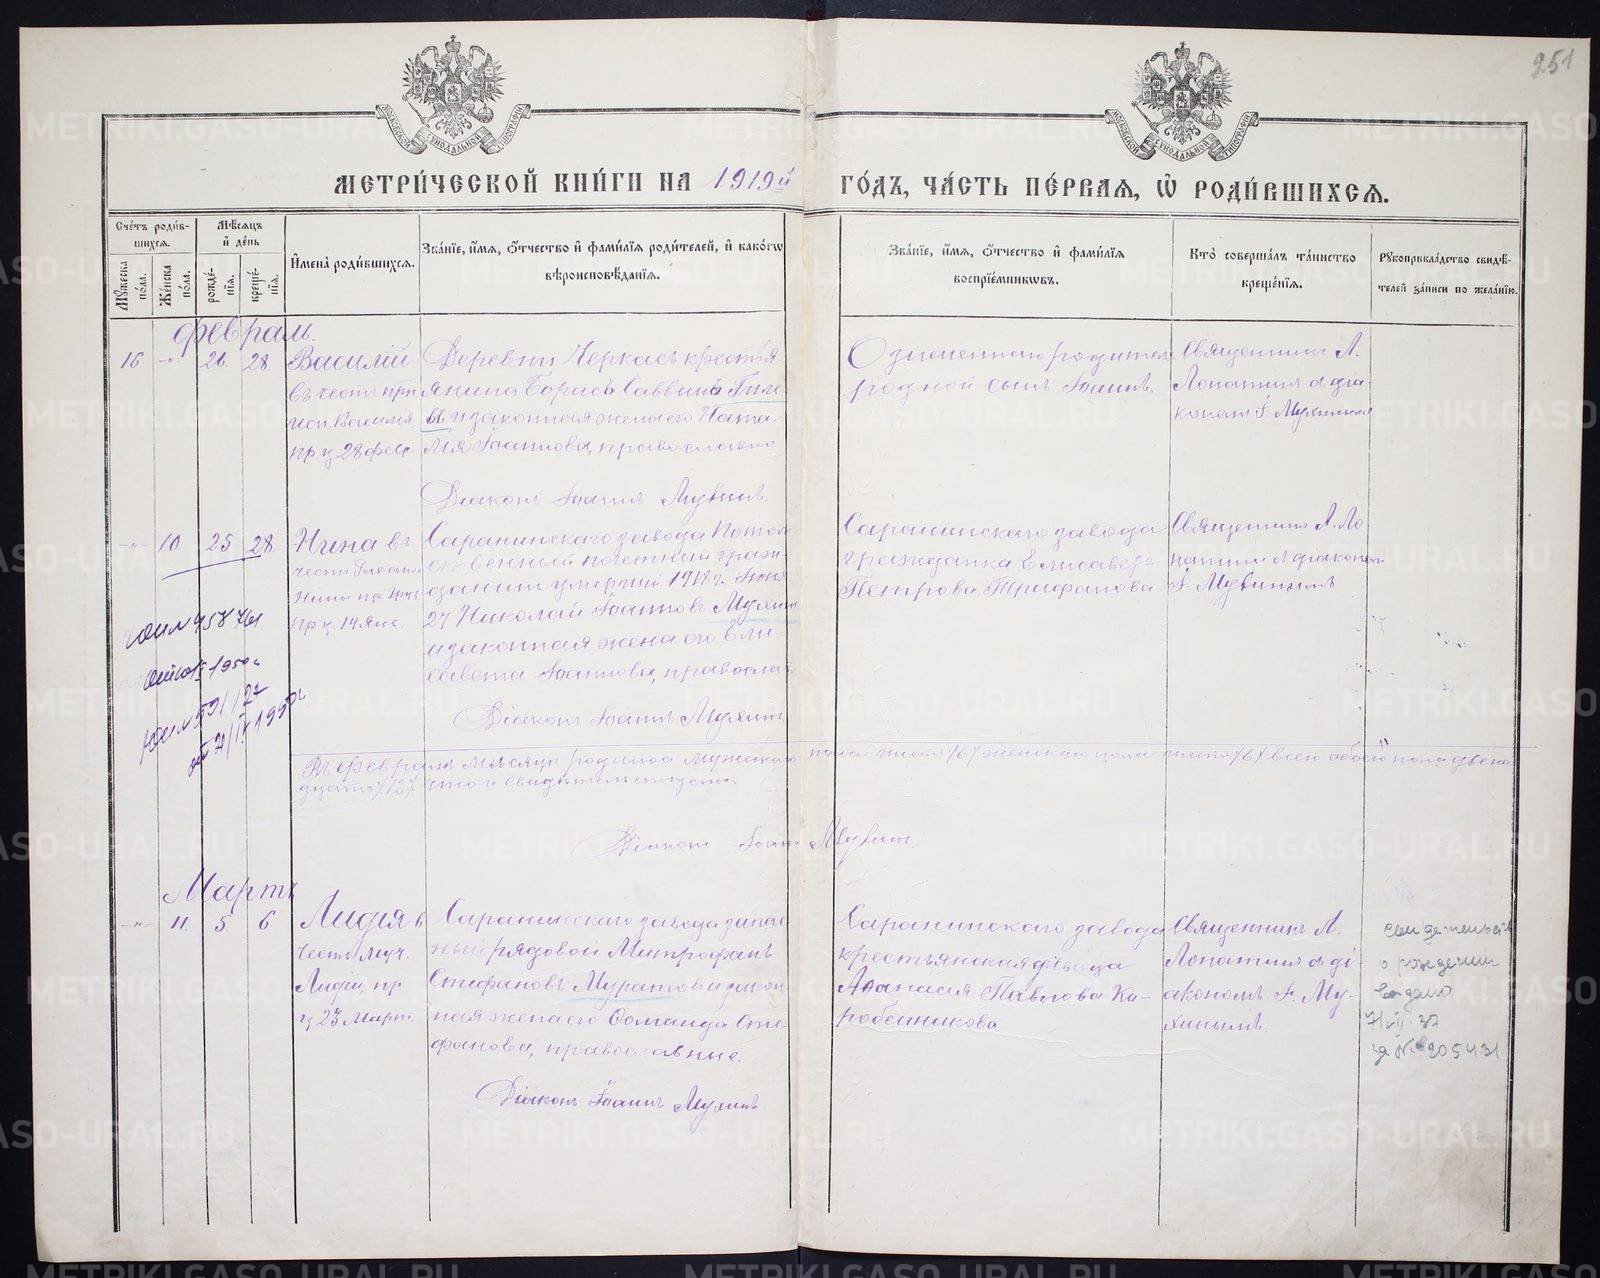 251
МОСКОВСКОЙ СѴНОДАЛЬНОЙ ТИПОГРАФІИ
МОСКОВСКОЙ СѴНОДАЛЬНОЙ ТИПОГРАФІИ
МЕТРИ́ЧЕСКОЙ КНИ́ГИ НА 1919й ГО́ДЪ, ЧА́СТЬ ПЕ́РВАЯ, Ѡ҆ РОДИ́ВШИХСЯ.
Сче́тъ роди́в-
шихся.
Мѣ́сяцъ
и҆ де́нь
Мꙋ́жеска по́ла.
Же́нска по́ла.
рожде́-
нїя.
креще́-
нїя.
И҆мена̀ роди́вшихся.
Зва́нїе, и҆́мя, ѻ҆́тчество и҆ фами́лїя роди́телей, и҆ како́гѡ
вѣроисповѣ́данїя.
Зва́нїе, и҆́мя, ѻ҆́тчество и҆ фами́лїя
воспрїе́мникѡвъ.
Кто̀ соверша́лъ та́инство
креще́нїя.
Рꙋкоприкла́дство свидѣ́-
телей за́писи по жела́нїю.
Февраль.
16 -"- 26. 28.
Василій
въ честь прп
исп. Василія,
пр. ц. 28 фев.
Деревни Черкасъ крестья-
янинъ Борисъ Саввинъ Пиле-
въ и законная жена его Ната-
лія Іоаннова, православн.
Діаконъ Іоаннъ Мухинъ.
Означеннаго родителя
родной сынъ Іоаннъ.
Священникъ Л.
Лопатинъ съ діа-
кономъ І. Мухинымъ
-"- 10. 25 28
Нина въ
честь Равноап.
Нины пр. Груз.
пр. ц. 14 Янв.
Саранинскаго завода Потом-
ственный почетный граж-
данинъ умершій 1918 г. Іюня
27 Николай Іоанновъ Мухинъ
и законная жена его Ели-
савета Іоаннова, православ
Діаконъ Іоаннъ Мухинъ
Саранинскаго завода
гражданка Елисавета
Петрова Трифанова
Священникъ Л. Ло-
патинъ съ діакономъ
І. Мухинымъ
1950 г
Въ февралѣ мѣсяцѣ родилось мужескаго пола шесть /6/ женскаго пола шесть /6/ всего обоего пола двѣна-
дцать /12/. Что и свидѣтельствуемъ.
Діаконъ Іоаннъ Мухинъ.
Мартъ
-"- 11. 5 6
Лидія въ
честь муч.
Лидіи, пр.
ц. 23 Март.
Саранинскаго завода запас-
ный рядовой Митрофанъ
Стефановъ Муратовъ и закон-
ная жена его Соломанида Сте-
фанова, православные.
Діаконъ Іоаннъ Мухинъ
Саранинскаго завода
крестьянская дѣвица
Аѳанасія Павлова Ко-
робейникова
Священникъ Л.
Лопатинъ съ ді-
акономъ І. Му-
хинымъ.
Свидетельство
о рождении
выдано
7/VII-37
за № 205431